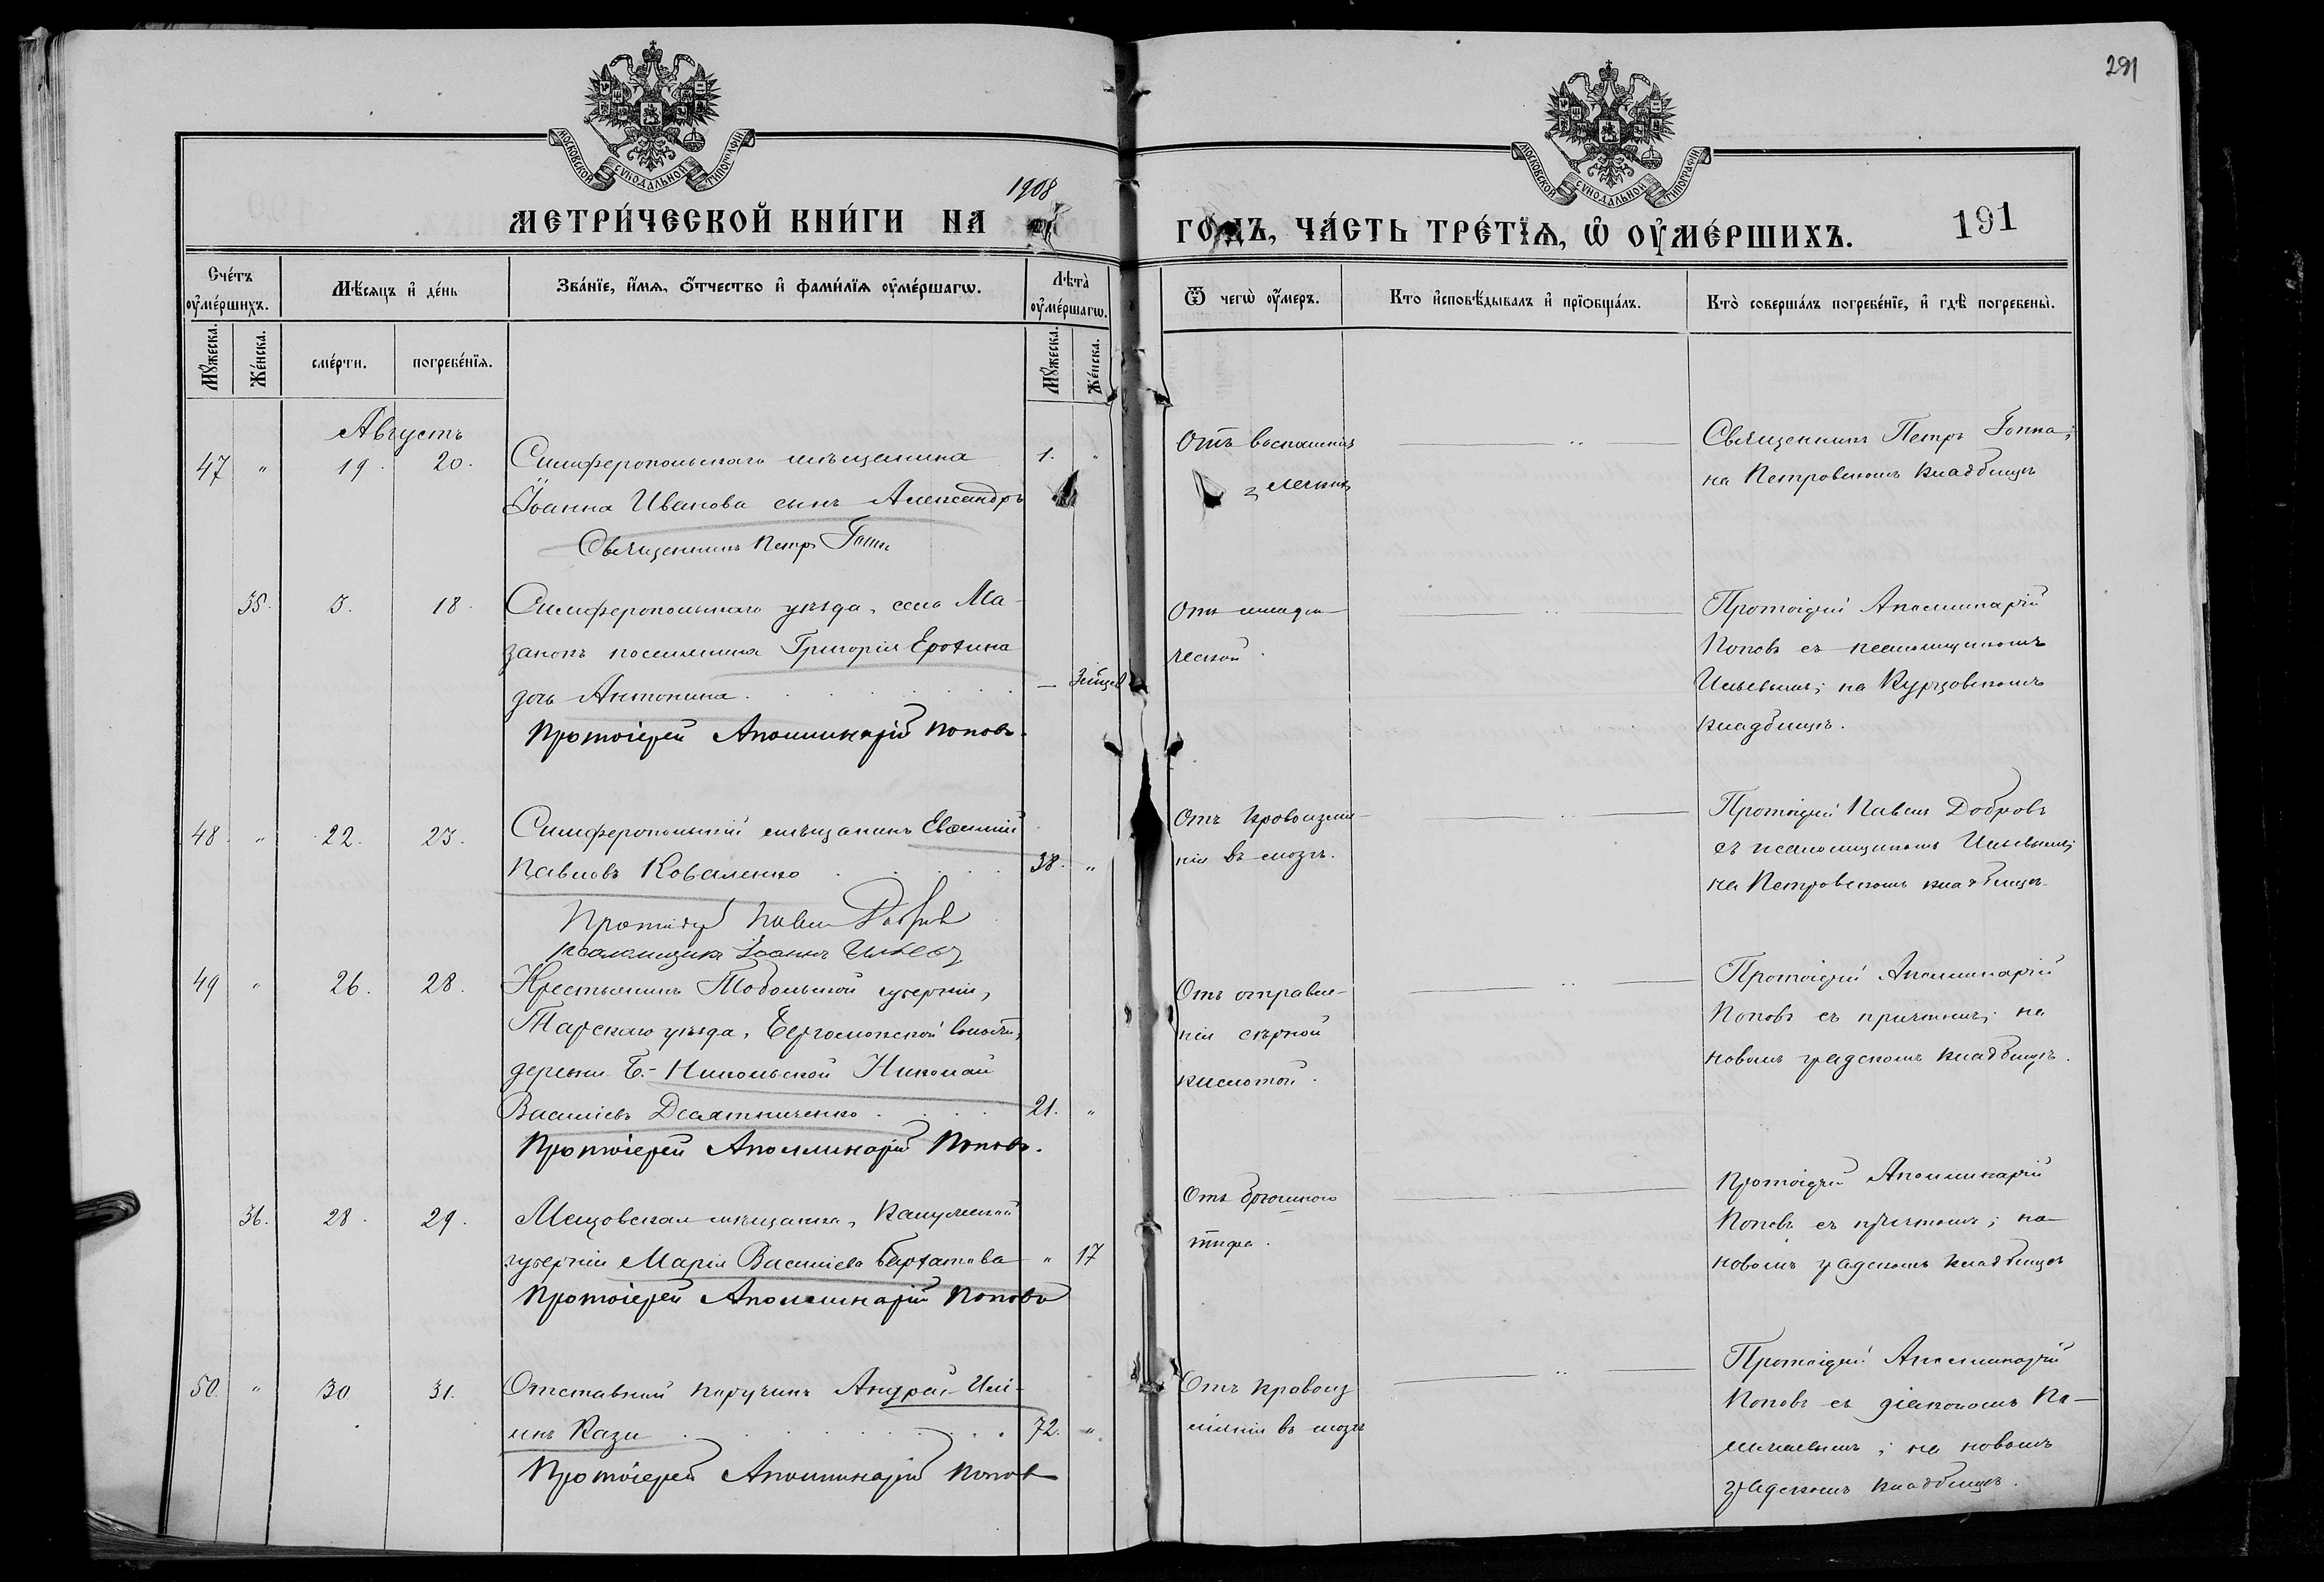 291
МОСКОВСКОЙ СѴНОДАЛЬНОЙ ТИПОГРАФІИ
МОСКОВСКОЙ СѴНОДАЛЬНОЙ ТИПОГРАФІИ
1908
МЕТРИ́ЧЕСКОЙ КНИ́ГИ НА
ГО́ДЪ, ЧА́СТЬ ТРЕ́ТЇѦ, Ѡ҆ ОУ҆МЕ́РШИХЪ.
191
Сче́тъ оу҆ме́ршихъ.
Мѣ́сяцъ и҆ де́нь
Зва́нїе, и҆́мя, о҆́тчество и҆ фами́лїя оу҆ме́ршагѡ.
Лѣта̀ оу҆ме́ршагѡ.
Ѿ чегѡ̀ оу҆́меръ.
Кто и҆сповѣ́дывалъ и҆ прїѡбща́лъ.
Кто̀ соверша́лъ погребе́нїе, и҆ гдѣ̀ погребены̀.
Мꙋ́жеска.
Же́нска.
сме́рти.
погребе́нїя.
Мꙋ́жеска.
Же́нска.
Августъ
47 " 19. 20. Симферопольскаго мѣщанина 1. "
Іоанна Иванова сынъ Александръ
Священникъ Петръ Гоппа
Отъ воспаленія
легкихъ
Священникъ Петръ Гоппа;
на Петровскомъ кладбищѣ
35. 3. 18. Симферопольскаго уѣзда, села Ма-
занокъ поселянина Григорія Ерохина
дочь Антонина
Протоіерей Аполлинарій Поповъ.
Протоіерей Аполлинарій
Поповъ съ псаломщикомъ
Ильевымъ; на Курцовскомъ
кладбищѣ.
48. " 22. 23. Симферопольскій мѣщанинъ Евѳимій
Павловъ Коваленко 38. "
Протоіерей Павелъ Добровъ
Псаломщикъ Іоаннъ Ильевъ
Отъ кровоизлія-
нія въ мозгъ.
Протоіерей Павелъ Добровъ
съ псаломщикомъ Ильевымъ;
на Петровскомъ кладбищѣ.
49 " 26. 28. Крестьянинъ Тобольской губерніи,
Тарскаго уѣзда, волости,
деревни Б.-Никольской Николай
Василіевъ Десятниченко 21. "
Протоіерей Аполлинарій Поповъ.
Отъ отравле-
нія сѣрной
кислотой.
Протоіерей Аполлинарій
Поповъ съ причтомъ; на
новомъ градскомъ кладбищѣ.
36. 28. 29. Мещовская мѣщанка, Калужской
губерніи Марія Василіева Бархатова " 17
Протоіерей Аполлинарій Поповъ
Отъ брюшного
тифа.
Протоіерей Аполлинарій
Поповъ съ причтомъ; на
новомъ градскомъ кладбищѣ
50. " 30 31. Отставной поручикъ Андрей Илі-
инъ Кази 72. "
Протоіерей Аполлинарій Поповъ
Отъ кровоиз
ліянія въ мозгъ
Протоіерей Аполлинарій
Поповъ съ діакономъ
; на новомъ
градскомъ кладбищѣ.